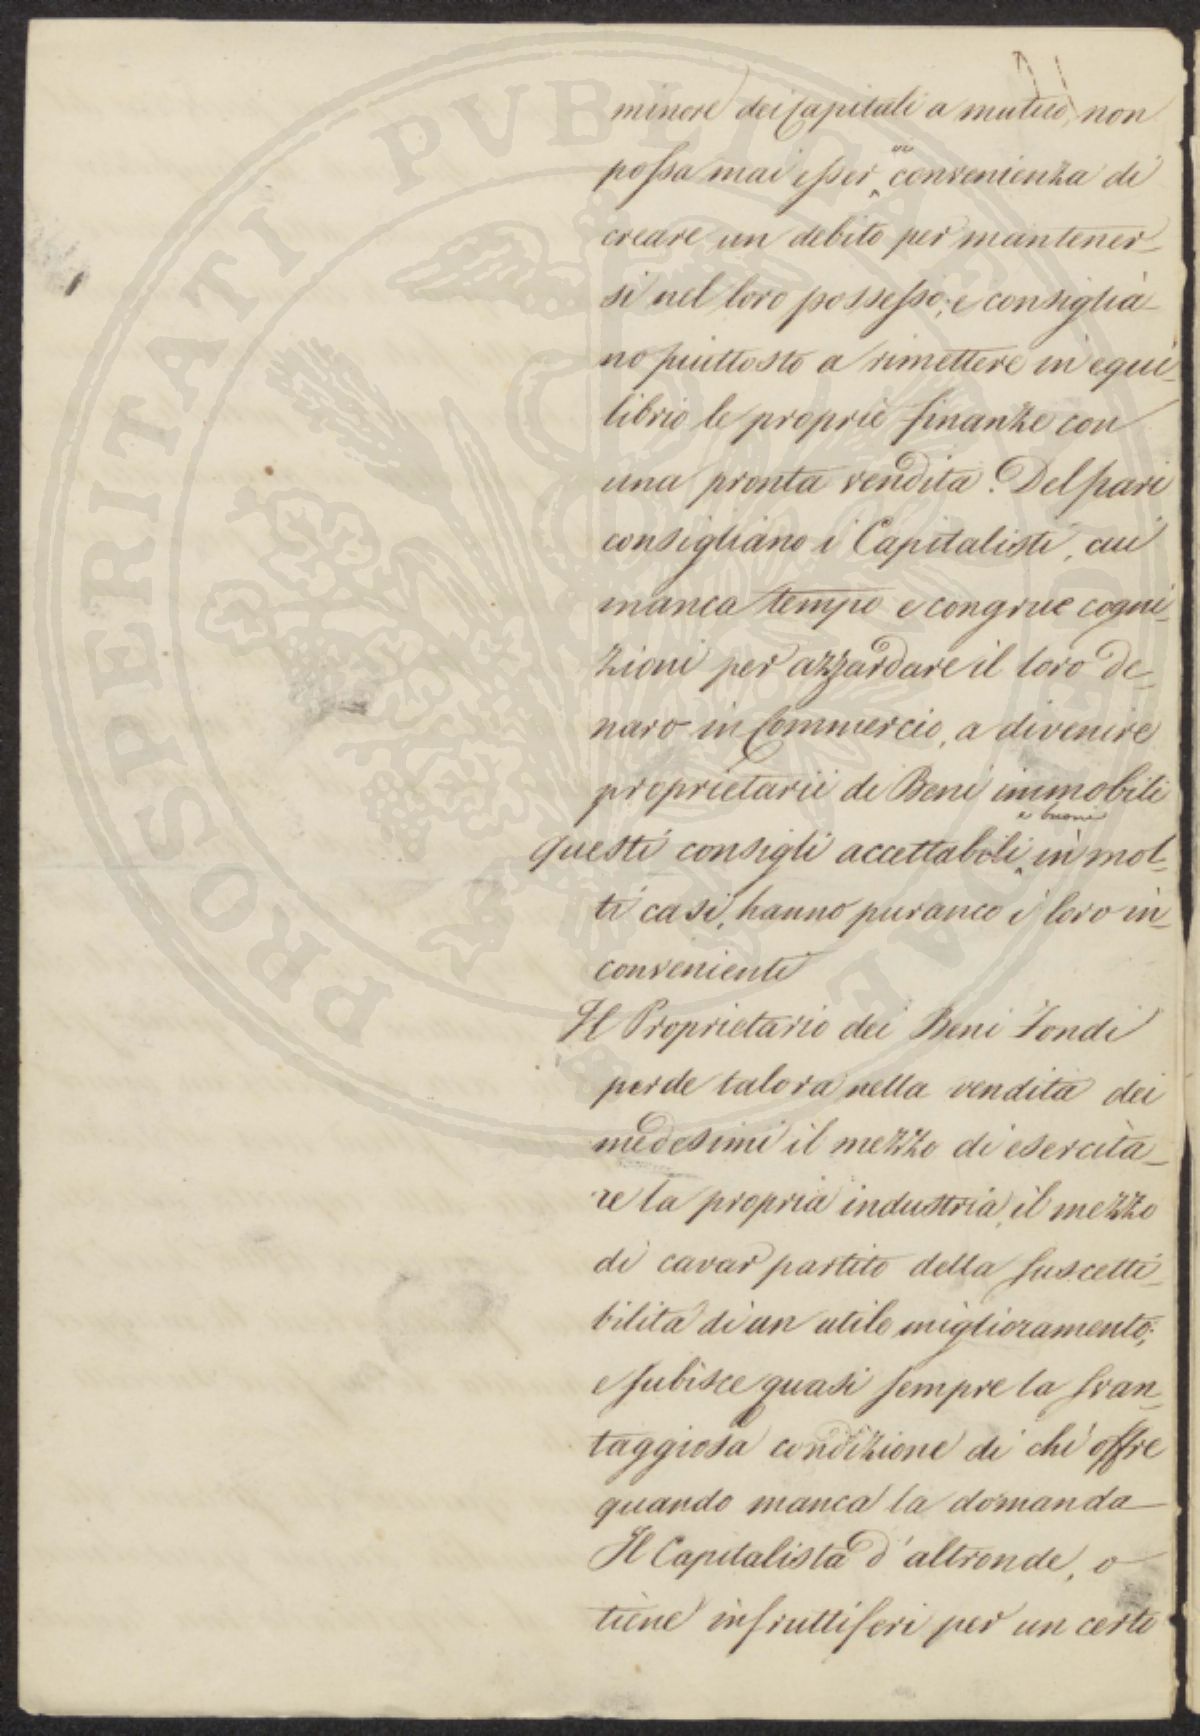 minore dei Capitali a mutuo, non
possa mai esser ve convenienza di
creare un debito per mantener-
si nel loro possesso; e consiglia-
no piuttosto a rimettere in equi-
librio le proprie finanze con
una pronta vendita. Del pari
consigliano i Capitalisti, cui
manca tempo e congrue cogni-
zioni per azzardare il loro de-
naro in Commercio, a divenire
proprietarii di Beni immobili
questi consigli accettabili e buoni in mol-
ti casi, hanno puranco i loro in-
convenienti
Il Proprietario dei Beni Fondi
perde talora nella vendita dei
medesimi il mezzo di esercita-
re la propria industria, il mezzo
di cavar partito della suscetti-
bilità di un utile miglioramento;
e subisce quasi sempre la svan-
taggiosa condizione di chi offre
quando manca la domanda
Il Capitalista d'altronde, o
tiene infruttiferi per un certo
PROSPERITATI PVBLICAE